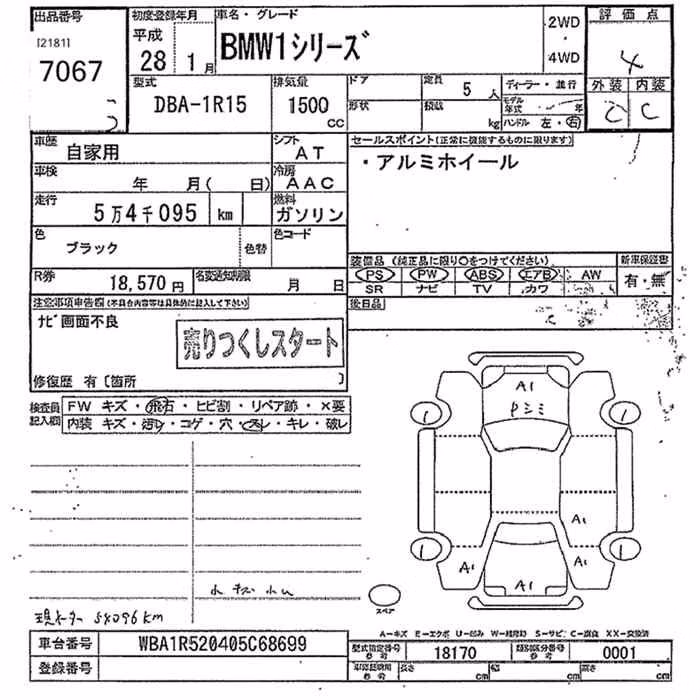 出品番号 初度登録年月 車名・グレード 2WD 評価点
[2181] 平成
7067 28 1月 BMW1シリーズ 4WD 4
型式 排気量 ドア 定員 5人 ディーラー・並行 外装 内装
DBA-1R15 1500 CC 形状 積載 kg モデル年式 年 C C
ハンドル 左・右
車歴 自家用 シフト AT セールスポイント(正常に機能するものに限ります)
・アルミホイール
車検 年 月( 日) 冷房 AAC
走行 5万4千095 km 燃料 ガソリン
色 ブラック 色替 色コード
装備品(純正品に限り○をつけてください) 新車保証書
R券 18,570円 名変通知期限 月 日 PS PW ABS エアB AW 有・無
SR ナビ TV カワ
注意事項申告欄(不具合内容等は具体的に記入して下さい) 後日品
ナビ画面不良
売りつくしスタート
修復歴 有〔箇所 〕
検査員記入欄 FW キズ・飛石・ヒビ割・リペア跡・×要
内装 キズ・汚れ・コゲ・穴・スレ・キレ・破レ
A1
Pシミ
1 1
A1
1 1
A1 A1
A1
スペア
現メーター 54096km
A-キズ E-エクボ U-凹み W-補修跡 S-サビ C-腐食 XX-交換済
車台番号 WBA1R520405C68699 型式指定番号 参考 18170 類別区分番号 参考 0001
登録番号 車庫証明用 参考 長さ cm 幅 cm 高さ cm